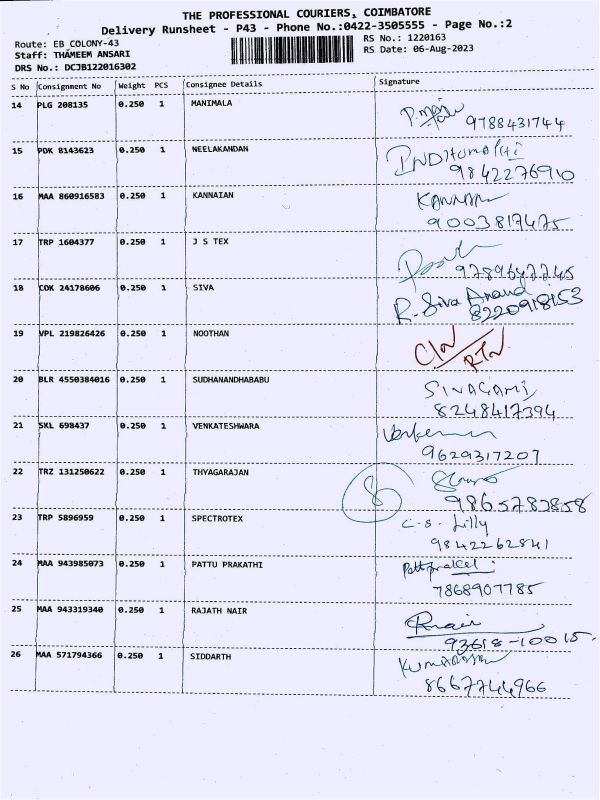 THE PROFESSIONAL COURIERS, COIMBATORE
Delivery Runsheet - P43 - Phone No.:0422-3505555 - Page No.:2
Route: EB COLONY-43
RS No.: 1220163
Staff: THAMEEM ANSARI
RS Date: 06-Aug-2023
DRS No.: DCJB122016302
S No Consignment No Weight PCS Consignee Details Signature
14 PLG 208135 0.250 1 MANIMALA
9788431744
15 PDK 8143623 0.250 1 NEELAKANDAN
9842276910
16 MAA 860916583 0.250 1 KANNAIAN KANNAN
9003817475
17 TRP 1604377 0.250 1 J S TEX
9789647745
18 COK 24178606 0.250 1 SIVA R. Siva Anand
8220918153
19 VPL 219826426 0.250 1 NOOTHAN
20 BLR 4550384016 0.250 1 SUDHANANDHABABU SIVAGAMI
8248417394
21 SKL 698437 0.250 1 VENKATESHWARA
9629317207
22 TRZ 131250622 0.250 1 THYAGARAJAN
9865783858
23 TRP 5896959 0.250 1 SPECTROTEX C.S. Lilly
9842262841
24 MAA 943985073 0.250 1 PATTU PRAKATHI
7868907785
25 MAA 943319340 0.250 1 RAJATH NAIR Rnair
93618-10015
26 MAA 571794366 0.250 1 SIDDARTH
8667744966